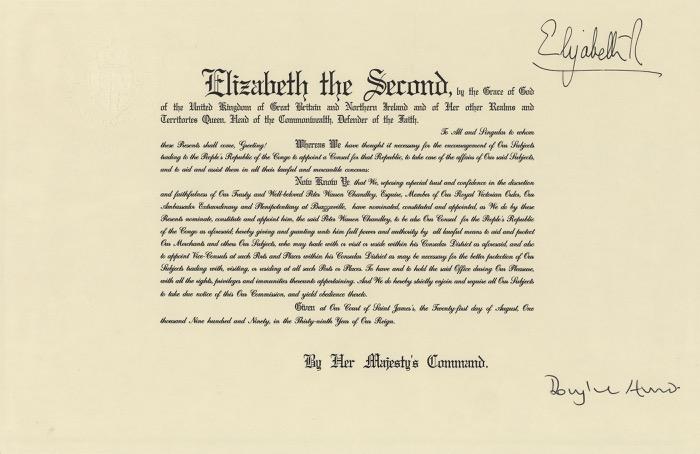 Elizabeth R
Elizabeth the Second, by the Grace of God
of the United Kingdom of Great Britain and Northern Ireland and of Her other Realms and
Territories Queen, Head of the Commonwealth, Defender of the Faith.
To All and Singular to whom
these Presents shall come, Greeting! Whereas We have thought it necessary for the encouragement of Our Subjects
trading to the People's Republic of the Congo to appoint a Consul for that Republic, to take care of the affairs of Our said Subjects,
and to aid and assist them in all their lawful and mercantile concerns:
Now Know Ye that We, reposing especial trust and confidence in the discretion
and faithfulness of Our Trusty and Well-beloved Peter Warren Chandley, Esquire, Member of Our Royal Victorian Order, Our
Ambassador Extraordinary and Plenipotentiary at Brazzaville, have nominated, constituted and appointed, as We do by these
Presents nominate, constitute and appoint him, the said Peter Warren Chandley, to be also Our Consul for the People's Republic
of the Congo as aforesaid; hereby giving and granting unto him full power and authority by all lawful means to aid and protect
Our Merchants and others Our Subjects, who may trade with or visit or reside within his Consular District as aforesaid, and also
to appoint Vice-Consuls at such Ports and Places within his Consular District as may be necessary for the better protection of Our
Subjects trading with, visiting, or residing at all such Ports or Places. To have and to hold the said Office during Our Pleasure,
with all the rights, privileges and immunities thereunto appertaining. And We do hereby strictly enjoin and require all Our Subjects
to take due notice of this Our Commission, and yield obedience thereto.
Given at Our Court of Saint James's, the Twenty-first day of August, One
thousand Nine hundred and Ninety, in the Thirty-ninth Year of Our Reign.
By Her Majesty's Command.
Douglas Hurd